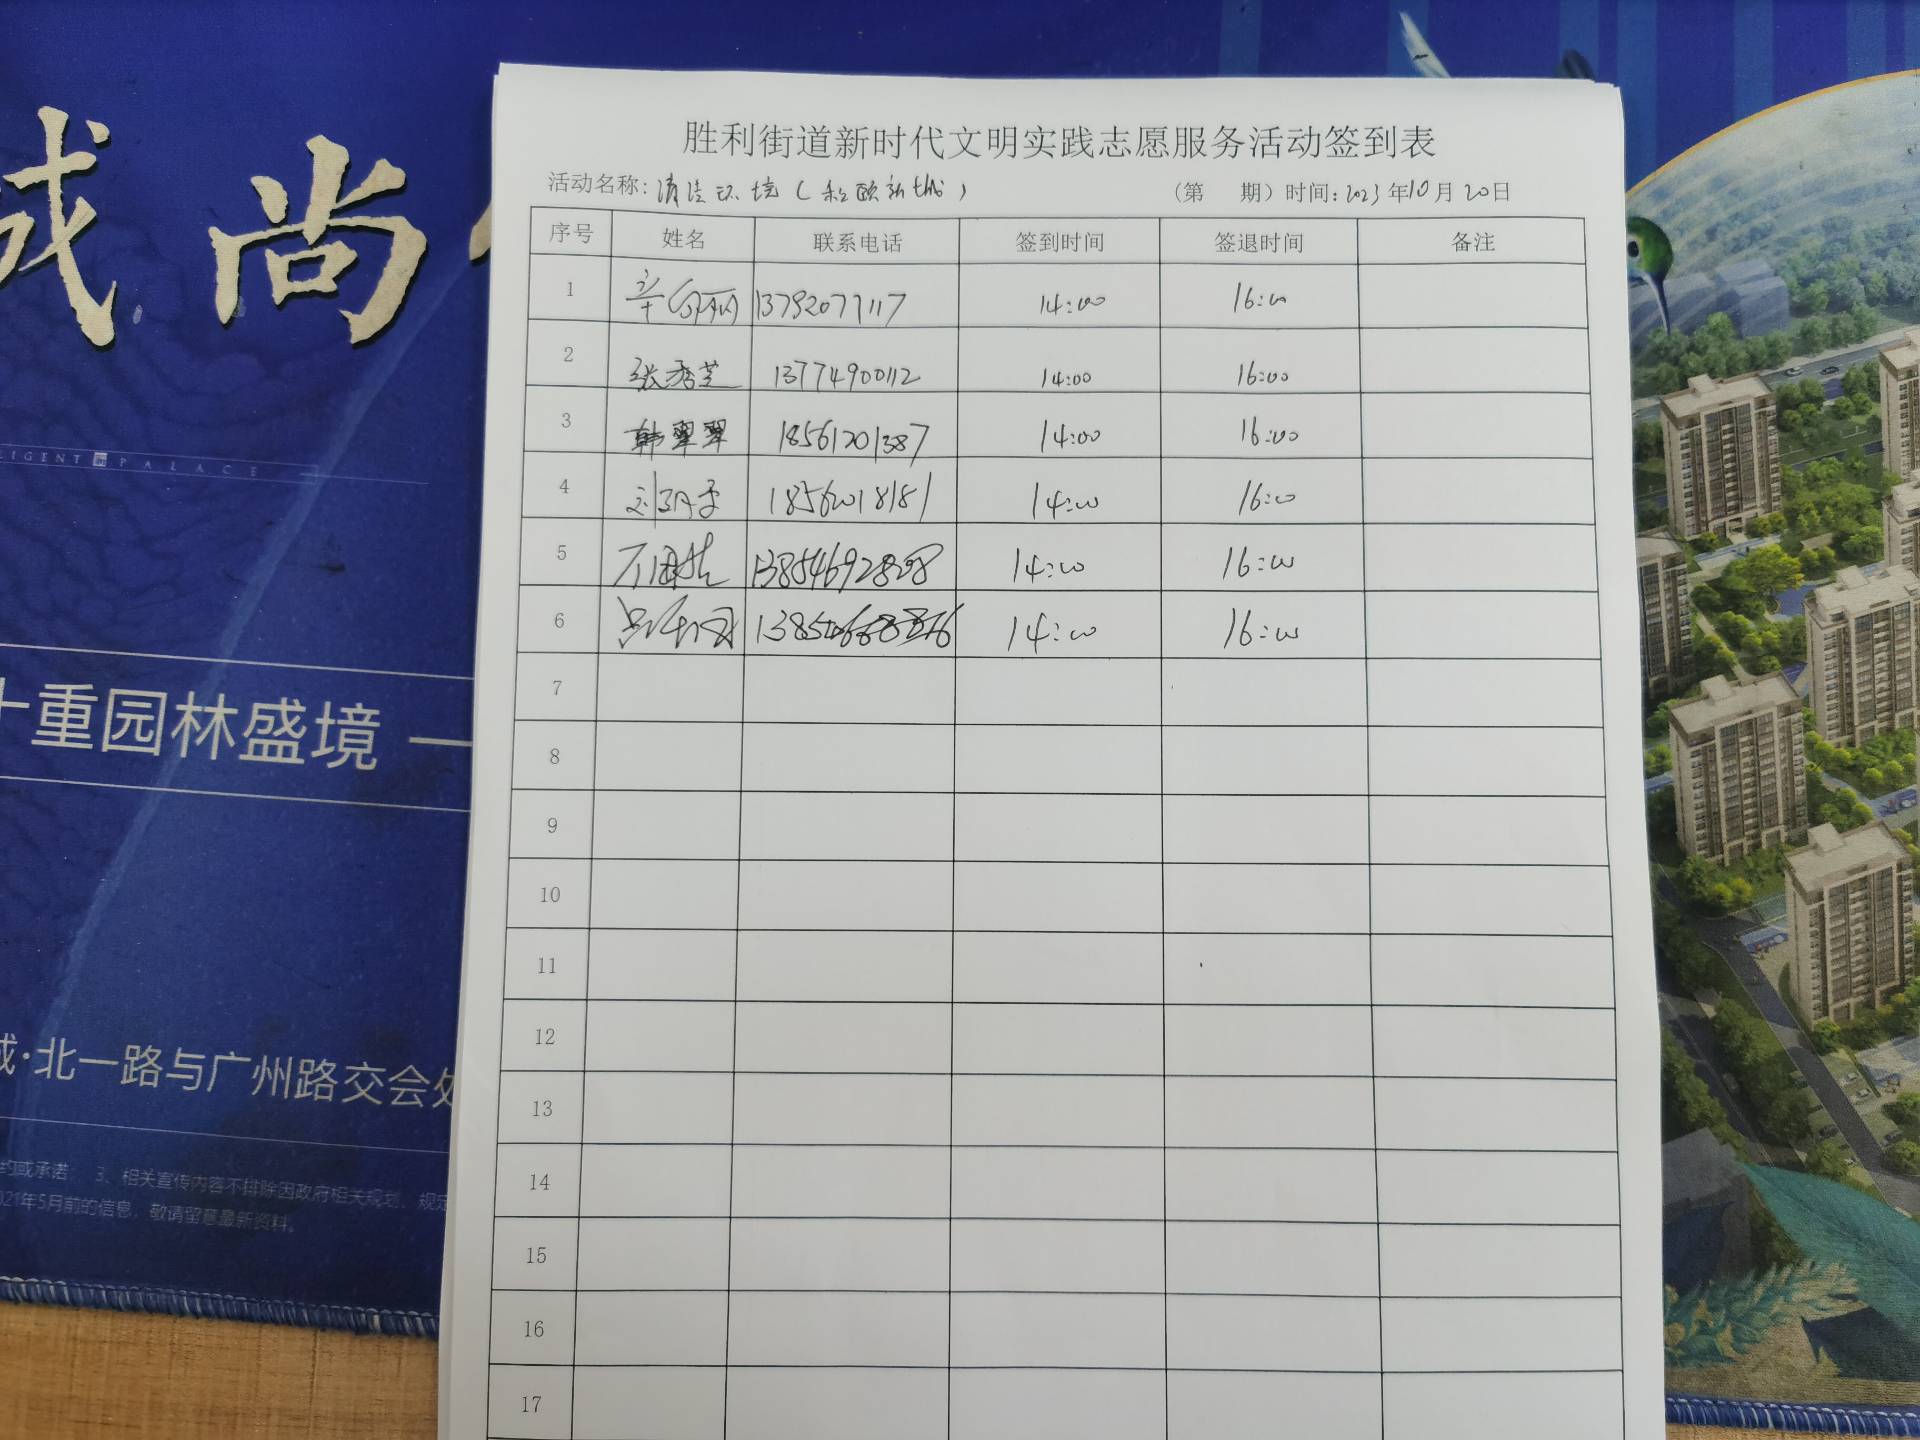 城 尚
LIGENT PALACE
十重园林盛境
城·北一路与广州路交会处
约或承诺; 3、相关宣传内容不排除因政府相关规划、规定
021年5月前的信息,敬请留意最新资料。
胜利街道新时代文明实践志愿服务活动签到表
活动名称:清洁环境(新城) (第 期)时间:2023年10月20日
序号 姓名 联系电话 签到时间 签退时间 备注
1 13792077117 14:00 16:00
2 张秀芝 13774900112 14:00 16:00
3 韩翠翠 18561201387 14:00 16:00
4 18562018181 14:00 16:00
5 14:00 16:00
6 14:00 16:00
7
8
9
10
11
12
13
14
15
16
17